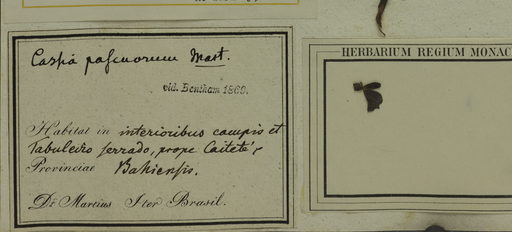 Cassia pascuorum Mart.
vid. Bentham 1869.
Habitat in interioribus campis et
Tabuleiro serrado, prope Caiteté,
Provinciae Bahiensis.
Dr. Martius Iter Brasil.
HERBARIUM REGIUM MONAC